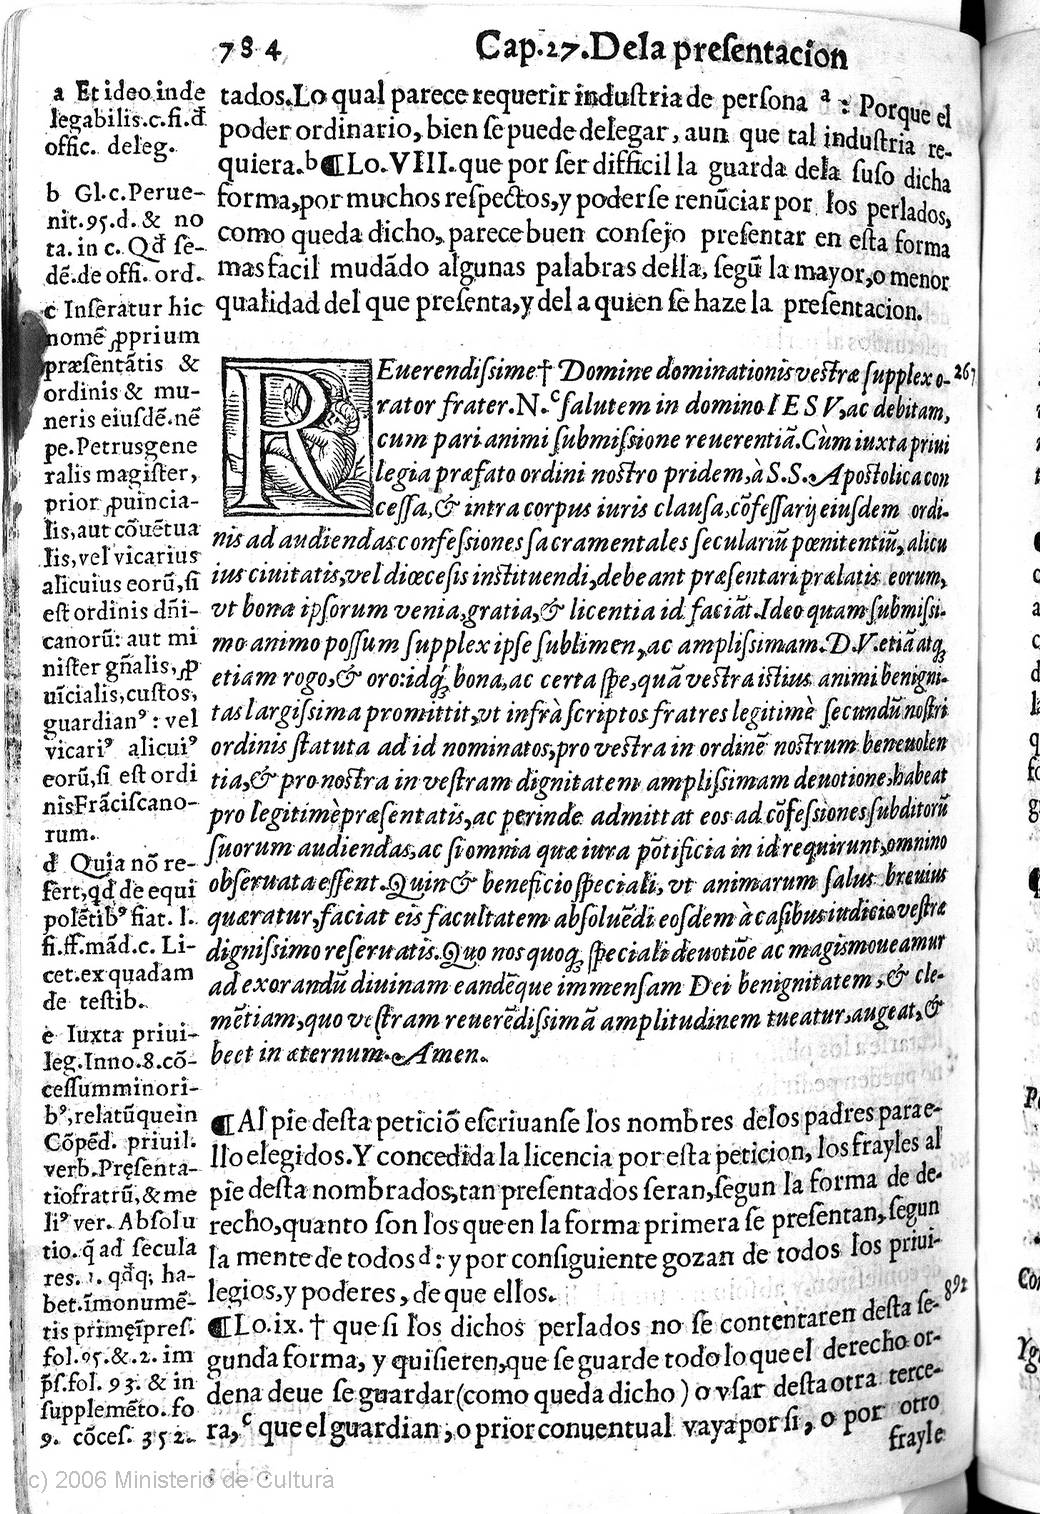 784
Cap.27.Dela preſentacion
tados.Lo qual parece requerir induſtria de perſona ª : Porque el
poder ordinario, bien ſe puede delegar, aun que tal induſtria re-
quiera.ᵇ¶Lo.VIII.que por ſer difficil la guarda dela ſuſo dicha
forma,por muchos reſpectos,y poderſe renũciar por los perlados,
como queda dicho, parece buen conſejo preſentar en eſta forma
mas facil mudãdo algunas palabras della, ſegũ la mayor,o menor
qualidad del que preſenta,y del a quien ſe haze la preſentacion.
REuerendiſsime† Domine dominationis veſtræ ſupplex o-
rator frater.N.ᶜſalutem in domino IESV,ac debitam,
cum pari animi ſubmiſsione reuerentiã.Cùm iuxta priui
legia præfato ordini noſtro pridem,à S.S.Apoſtolica con
ceſſa,& intra corpus iuris clauſa,cõfeſſarij eiuſdem ordi-
nis ad audiendas confeſsiones ſacramentales ſeculariũ pœnitentiũ, alicu
ius ciuitatis,vel diœceſis inſtituendi,debeant præſentari prælatis eorum,
vt bona ipſorum venia,gratia,& licentia id faciãt.Ideo quam ſubmiſsi-
mo animo poſſum ſupplex ipſe ſublimem,ac ampliſsimam.D.V.etiã atq́;
etiam rogo,& oro:idq́; bona,ac certa ſpe,quã veſtra iſtius animi benigni-
tas largiſsima promittit,vt infrà ſcriptos fratres legitimè ſecundũ noſtri
ordinis ſtatuta ad id nominatos,pro veſtra in ordinẽ noſtrum beneuolen
tia,& pro noſtra in veſtram dignitatem ampliſsimam deuotione,habeat
pro legitimè præſentatis,ac perinde admittat eos ad cõfeſsiones ſubditorũ
ſuorum audiendas,ac ſi omnia quæ iura põtificia in id requirunt,omnino
obſeruata eſſent.Quin & beneficio ſpeciali, vt animarum ſalus breuius
quæratur,faciat eis facultatem abſoluẽdi eoſdem à caſibus iudicio veſtræ
digniſsimo reſeruatis.Quo nos quoq; ſpeciali deuotiõe ac magis moueamur
ad exorandũ diuinam eandẽque immenſam Dei benignitatem,& cle-
mẽtiam,quo veſtram reuerẽdiſsimã amplitudinem tueatur,augeat,&
beet in æternum.Amen.
267
¶Al pie deſta peticiõ eſcriuanſe los nombres delos padres para e-
llo elegidos.Y concedida la licencia por eſta peticion, los frayles al
pie deſta nombrados,tan preſentados ſeran,ſegun la forma de de-
recho,quanto ſon los que en la forma primera ſe preſentan,ſegun
la mente de todos ᵈ: y por conſiguiente gozan de todos los priui-
legios,y poderes, de que ellos.
¶Lo.ix.† que ſi los dichos perlados no ſe contentaren deſta ſe-
gunda forma, y quiſieren,que ſe guarde todo lo que el derecho or-
dena deue ſe guardar(como queda dicho) o vſar deſta otra terce-
ra,ᵉ que el guardian,o prior conuentual vaya por ſi, o por otro
frayle
892
a Et ideo inde
legabilis.c.fi.đ
offic. deleg.
b Gl.c.Perue-
nit.95.d.& no
ta.in c. Qđ ſe-
dẽ.de offi. ord.
c Inſeratur hic
nomẽ ꝓprium
præſentãtis &
ordinis & mu-
neris eiuſdẽ.nẽ
pe.Petrus gene
ralis magiſter,
prior ꝓuincia-
lis,aut cõuẽtua
lis,vel vicarius
alicuius eorũ,ſi
eſt ordinis dñi-
canorũ: aut mi
niſter gñalis,ꝓ
uĩcialis,cuſtos,
guardianꝰ: vel
vicariꝰ alicuiꝰ
eorũ,ſi eſt ordi
nis Frãciſcano-
rum.
d Quia nõ re-
fert,qđ de equi
polẽtibꝰ fiat. l.
fi.ff.mãd.c. Li-
cet.ex quadam
de teſtib.
e Iuxta priui-
leg.Inno.8.cõ-
ceſſum minori-
bꝰ,relatũque in
Cõpẽd. priuil.
verb.Pręſenta-
tio fratrũ,& me
liꝰ ver. Abſolu
tio. q̃ ad ſecula
res. 1. qđq; ha-
bet.ĩ monumẽ-
tis primę ĩpreſ.
fol.95.&.2. im
p̃ſ.fol. 93. & in
ſupplemẽto. fo
9. cõceſ. 352.
(c) 2006 Ministerio de Cultura